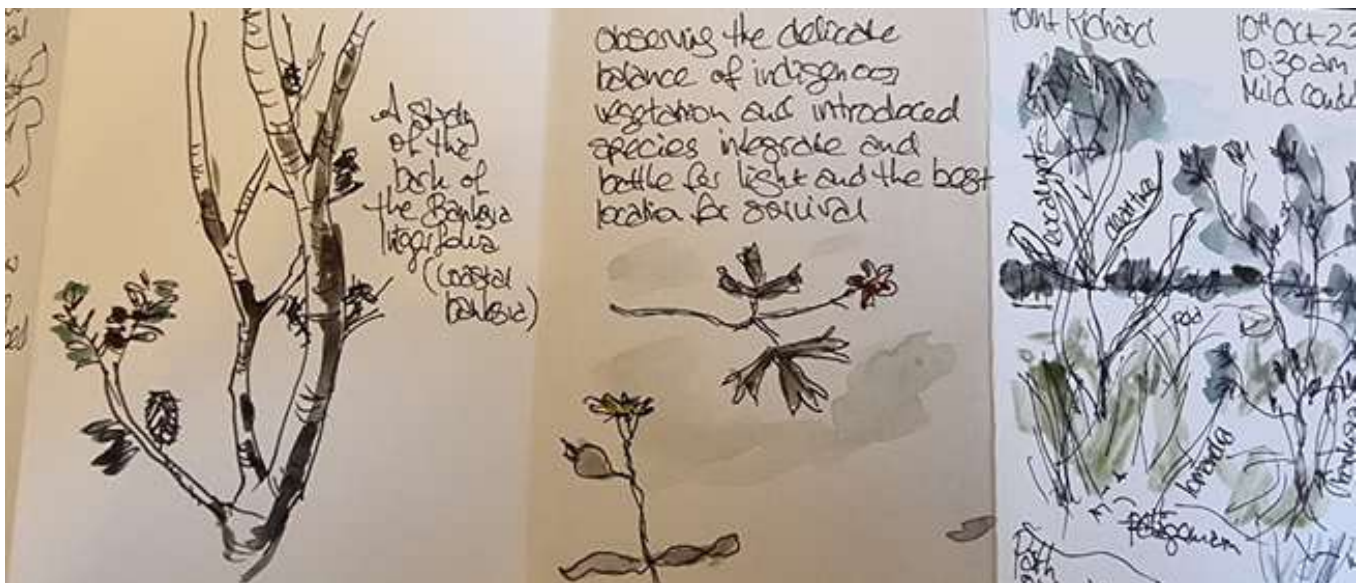 A study
of the
bark of
the Banksia
Integrifolia
(coastal
banksia)
observing the delicate
balance of indigenous
vegetation and introduced
species integrate and
battle for light and the best
location for survival
Point Richard
10th Oct 23
10.30am
Mild
eucalypt
poa
lomandra
Pelargonium
Path